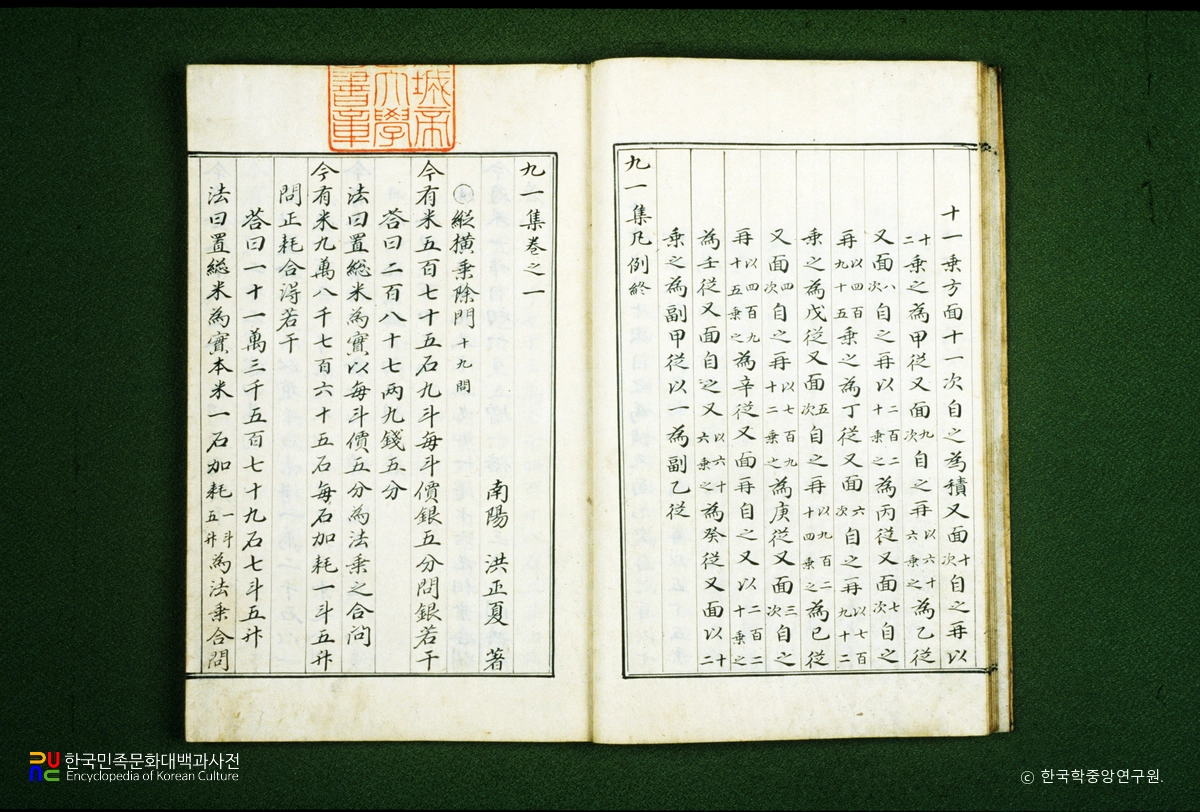 十一乘方面十一次自之為積又面十次自之再以
十二乘之為甲從又面九次自之再以六十六乘之為乙從
又面八次自之再以二百二十乘之為丙從又面七次自之
再以四百九十五乘之為丁從又面六次自之再以七百九十二
乘之為戊從又面五次自之再以九百二十四乘之為己從
又面四次自之再以七百九十二乘之為庚從又面三次自之
再以四百九十五乘之為辛從又面再自之又以二百二十乘之
為壬從又面自之又以六十六乘之為癸從又面以十二
乘之為副甲從以一為副乙從
九一集凡例終
城帝
大學
書章
九一集卷之一
南陽 洪正夏 著
縱橫乘除門十九問
今有米五百七十五石九斗每斗價銀五分問銀若干
荅曰二百八十七兩九錢五分
法曰置總米為實以每斗價五分為法乘之合問
今有米九萬八千七百六十五石每石加耗一斗五升
問正耗合淂若干
荅曰一十一萬三千五百七十九石七斗五升
法曰置総米為實本米一石加耗一斗五升為法乘合問
한국민족문화대백과사전
Encyclopedia of Korean Culture
ⓒ 한국학중앙연구원.